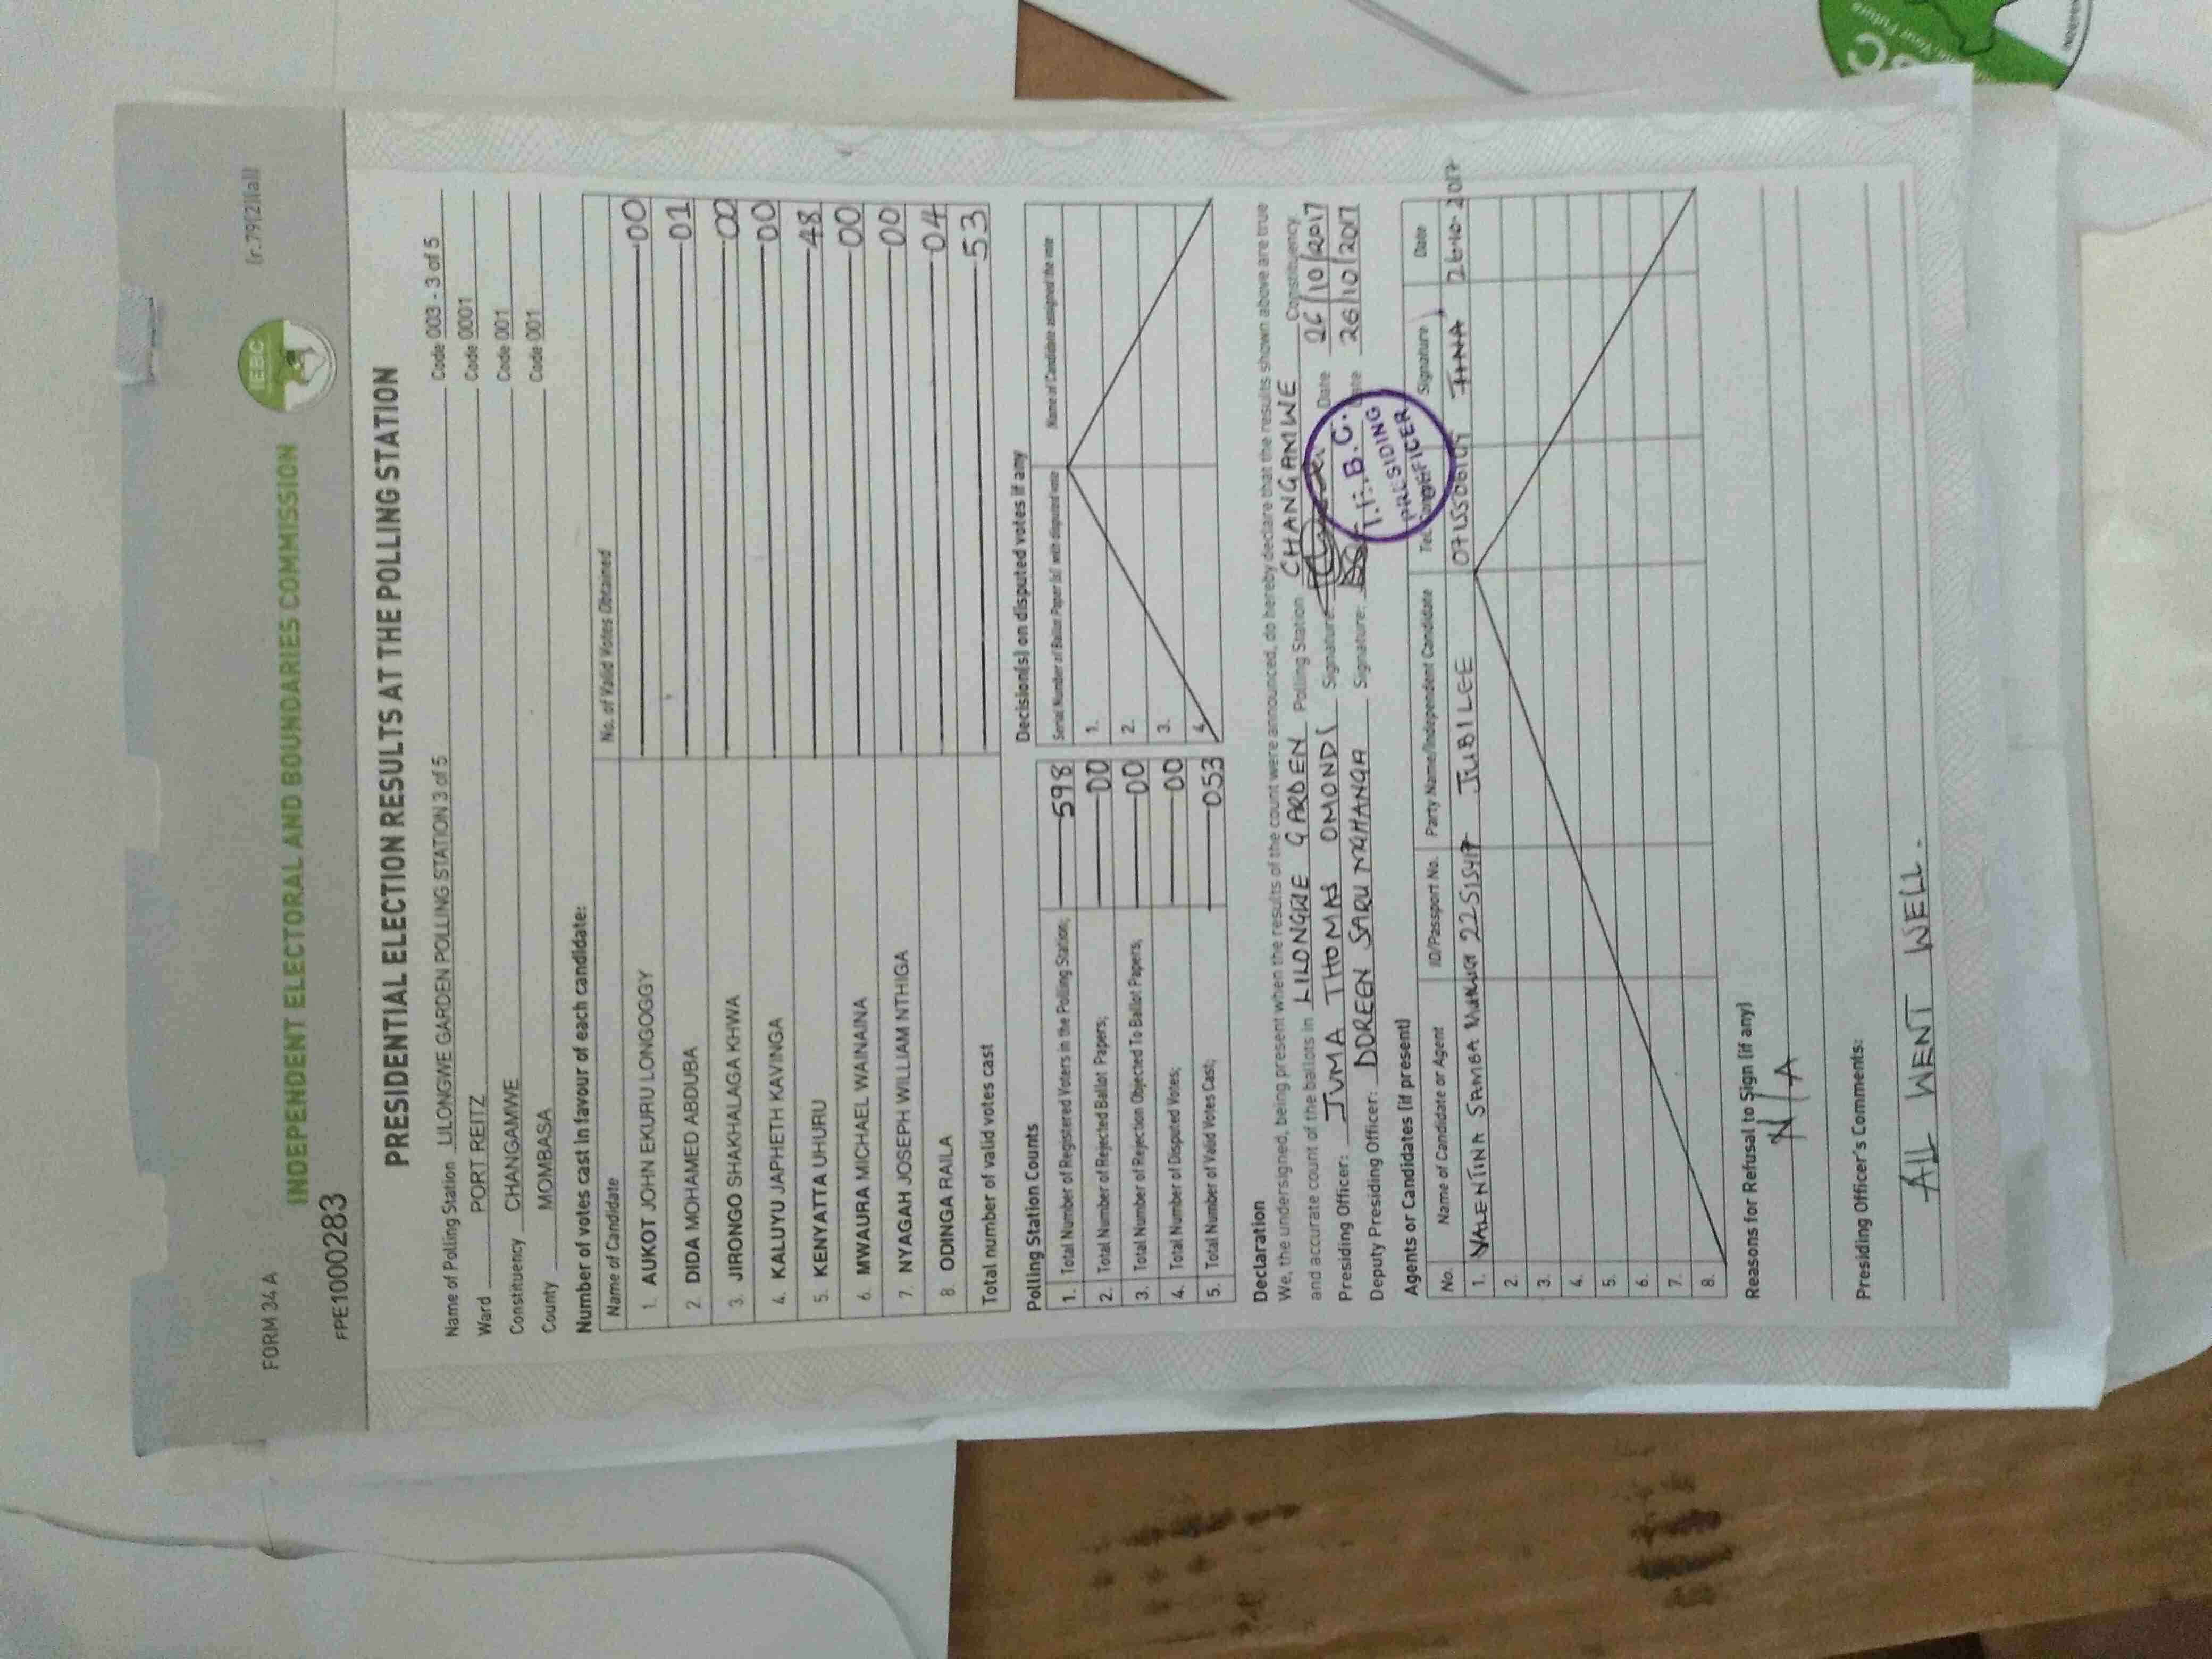 FORM 34 A
(r.79(2)(a))
INDEPENDENT ELECTORAL AND BOUNDARIES COMMISSION
IEBC
FPE1000283
PRESIDENTIAL ELECTION RESULTS AT THE POLLING STATION
Name of Polling Station LILONGWE GARDEN POLLING STATION 3 of 5 Code 003 - 3 of 5
Ward PORT REITZ Code 0001
Constituency CHANGAMWE Code 001
County MOMBASA Code 001
Number of votes cast in favour of each candidate:
Name of Candidate No. of Valid Votes Obtained
1. AUKOT JOHN EKURU LONGOGGY 00
2. DIDA MOHAMED ABDUBA 01
3. JIRONGO SHAKHALAGA KHWA 00
4. KALUYU JAPHETH KAVINGA 00
5. KENYATTA UHURU 48
6. MWAURA MICHAEL WAINAINA 00
7. NYAGAH JOSEPH WILLIAM NTHIGA 00
8. ODINGA RAILA 04
Total number of valid votes cast 53
Polling Station Counts
1. Total Number of Registered Voters in the Polling Station; 598
2. Total Number of Rejected Ballot Papers; 00
3. Total Number of Rejection Objected To Ballot Papers; 00
4. Total Number of Disputed Votes; 00
5. Total Number of Valid Votes Cast; 053
Decision(s) on disputed votes if any
Serial Number of Ballot Paper (s) with disputed vote Name of Candidate assigned the vote
1.
2.
3.
4.
Declaration
We, the undersigned, being present when the results of the count were announced, do hereby declare that the results shown above are true
and accurate count of the ballots in LILONGWE GARDEN Polling Station CHANGAMWE Constituency.
Presiding Officer: JUMA THOMAS OMONDI Signature: Date 26/10/2017
Deputy Presiding Officer: DOREEN SARU Signature: Date 26/10/2017
I.E.B.C.
PRESIDING
OFFICER
Agents or Candidates (if present)
No. Name of Candidate or Agent ID/Passport No. Party Name/Independent Candidate Tel. Contact Signature Date
1. VALENTINA SAMBA JUBILEE TINA 26-10-2017
2.
3.
4.
5.
6.
7.
8.
Reasons for Refusal to Sign (if any)
N/A
Presiding Officer's Comments:
ALL WENT WELL.
Your Future